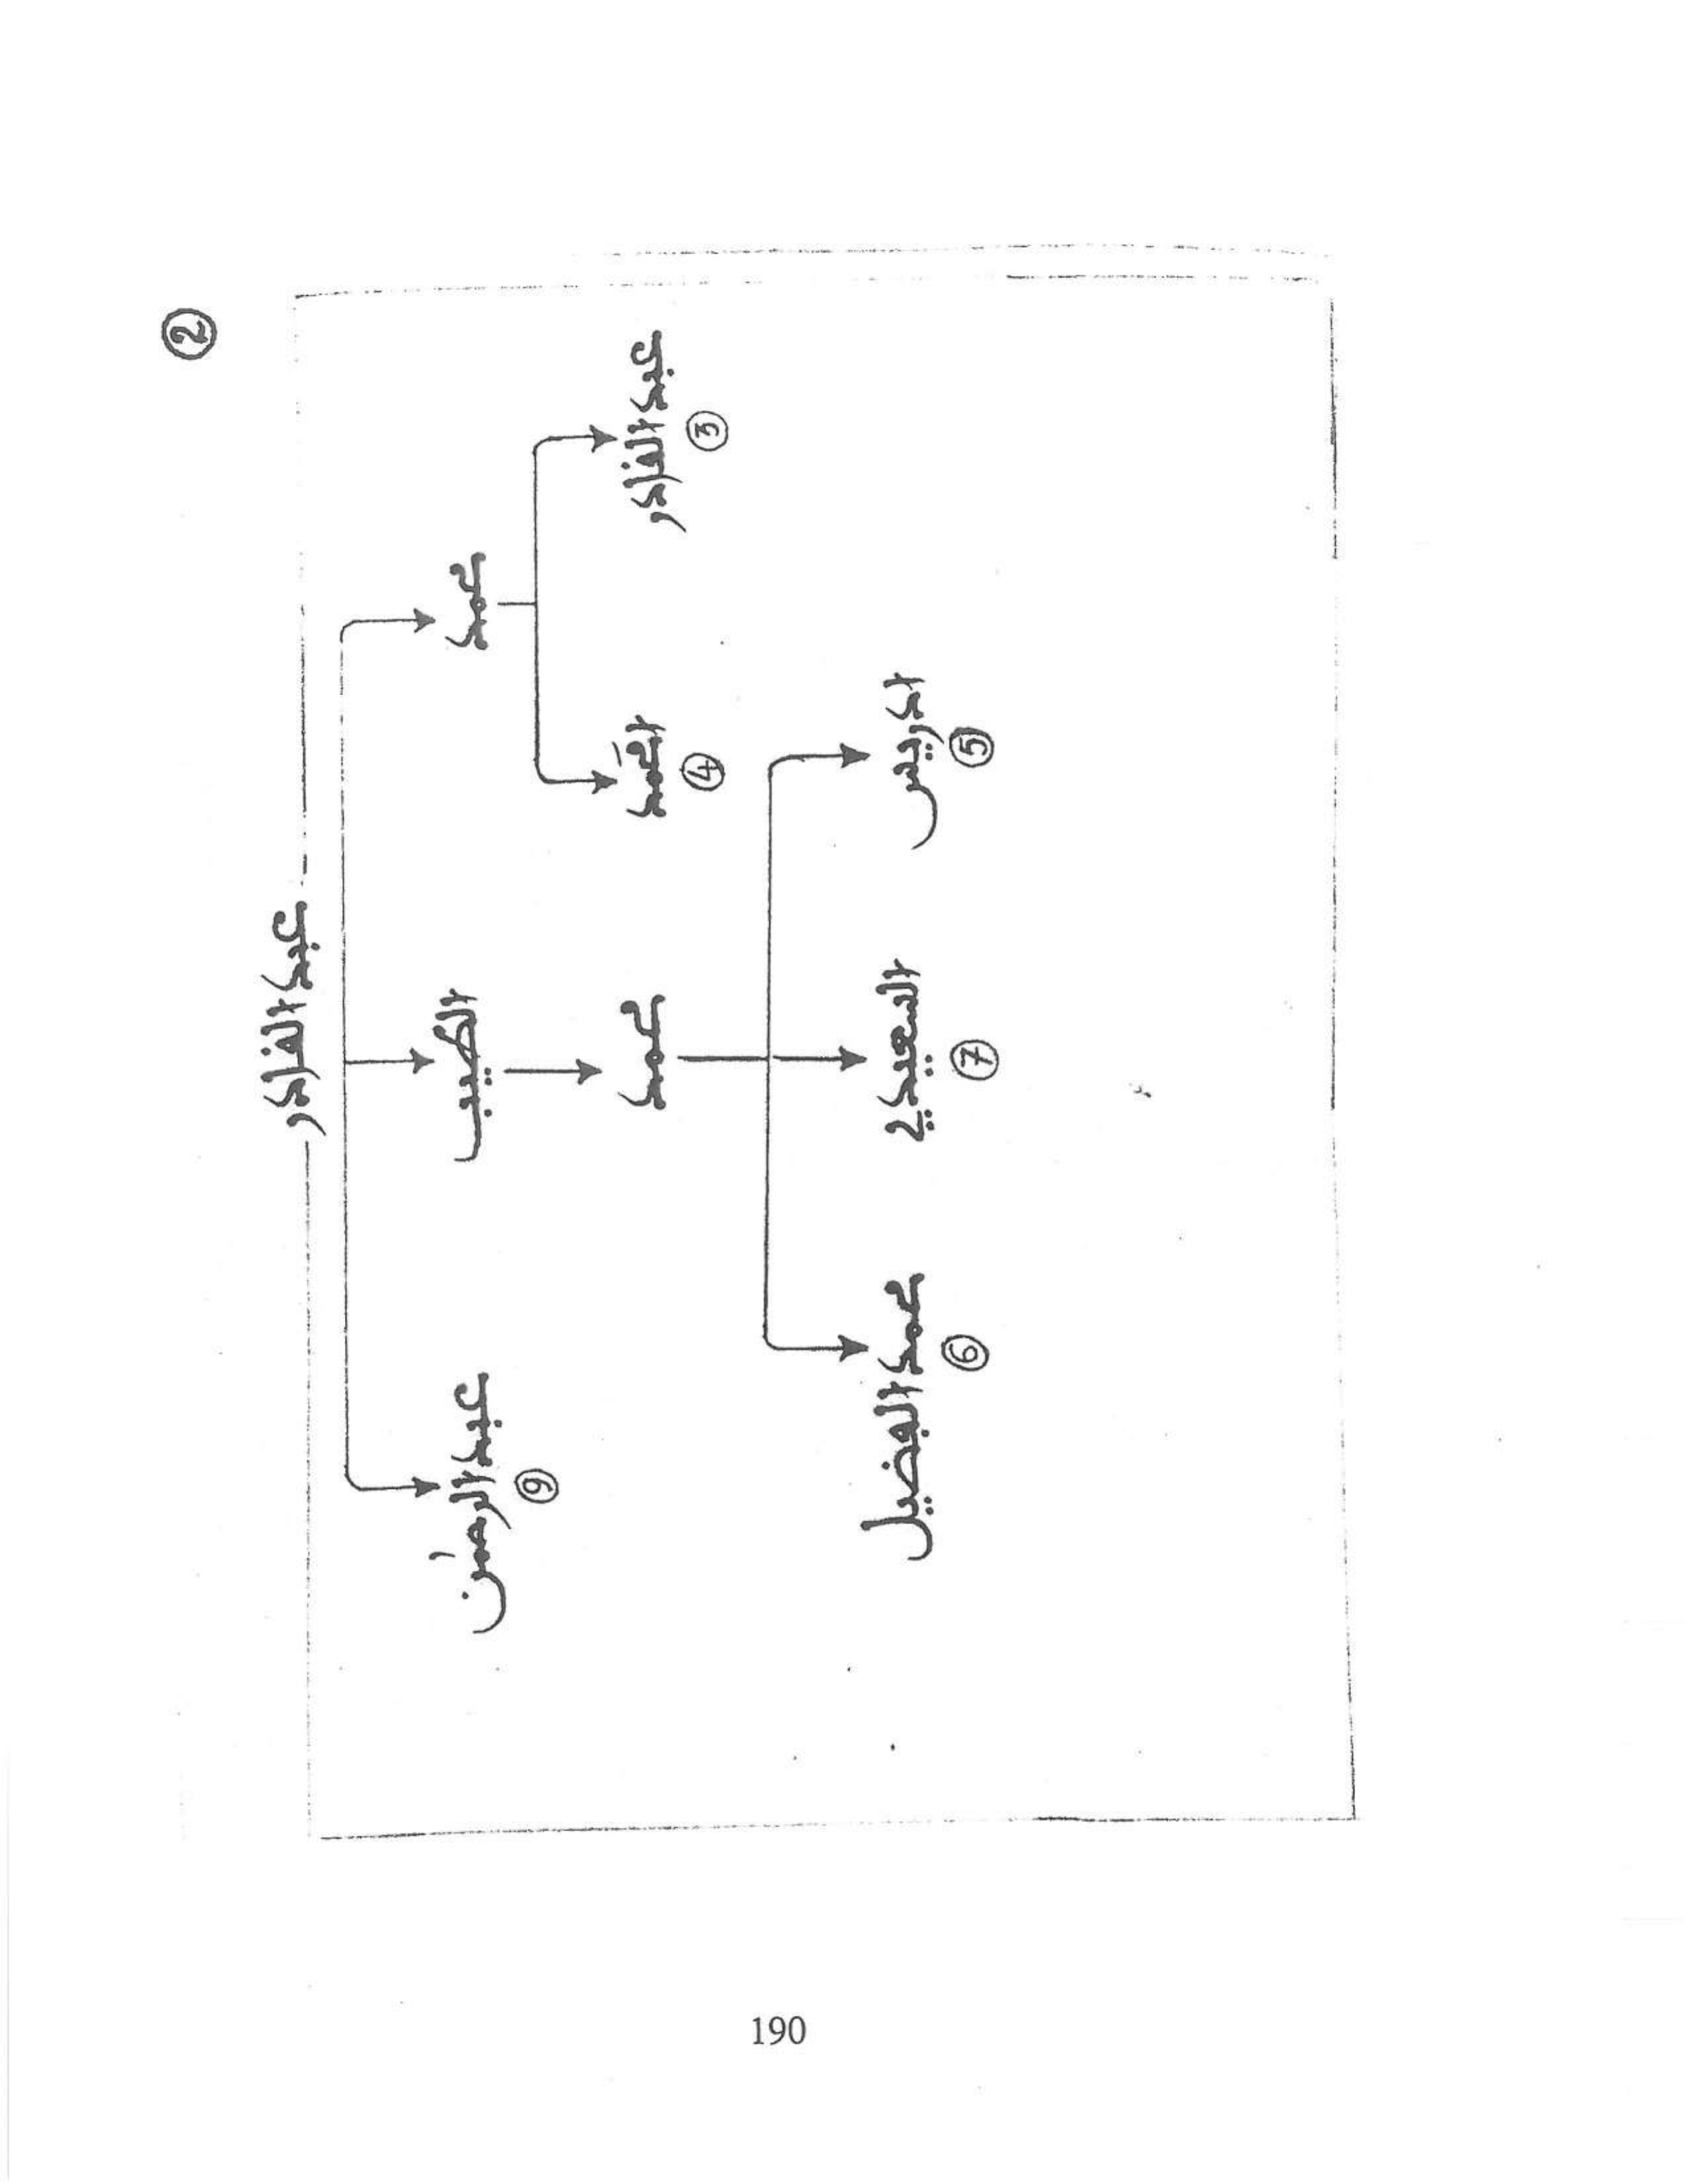 ②
عبد القادر
محمد
الطيب
عبد الرحمن
⑨
عبد القادر
③
احمد
④
محمد
ادريس
⑤
السعيدي
⑦
محمد الفضيل
⑥
190